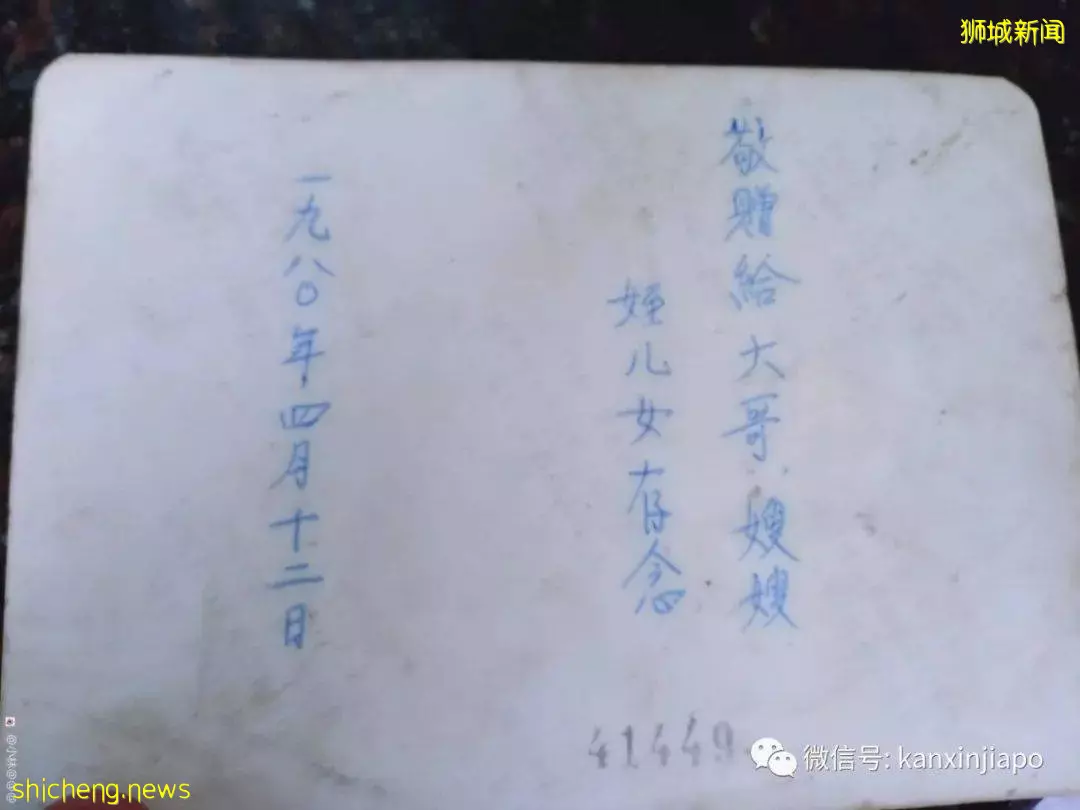 狮城新闻
敬贈給大哥、嫂嫂
姪儿女存念
一九八〇年四月十二日
41449
微信号: kanxinjiapo
shicheng.news